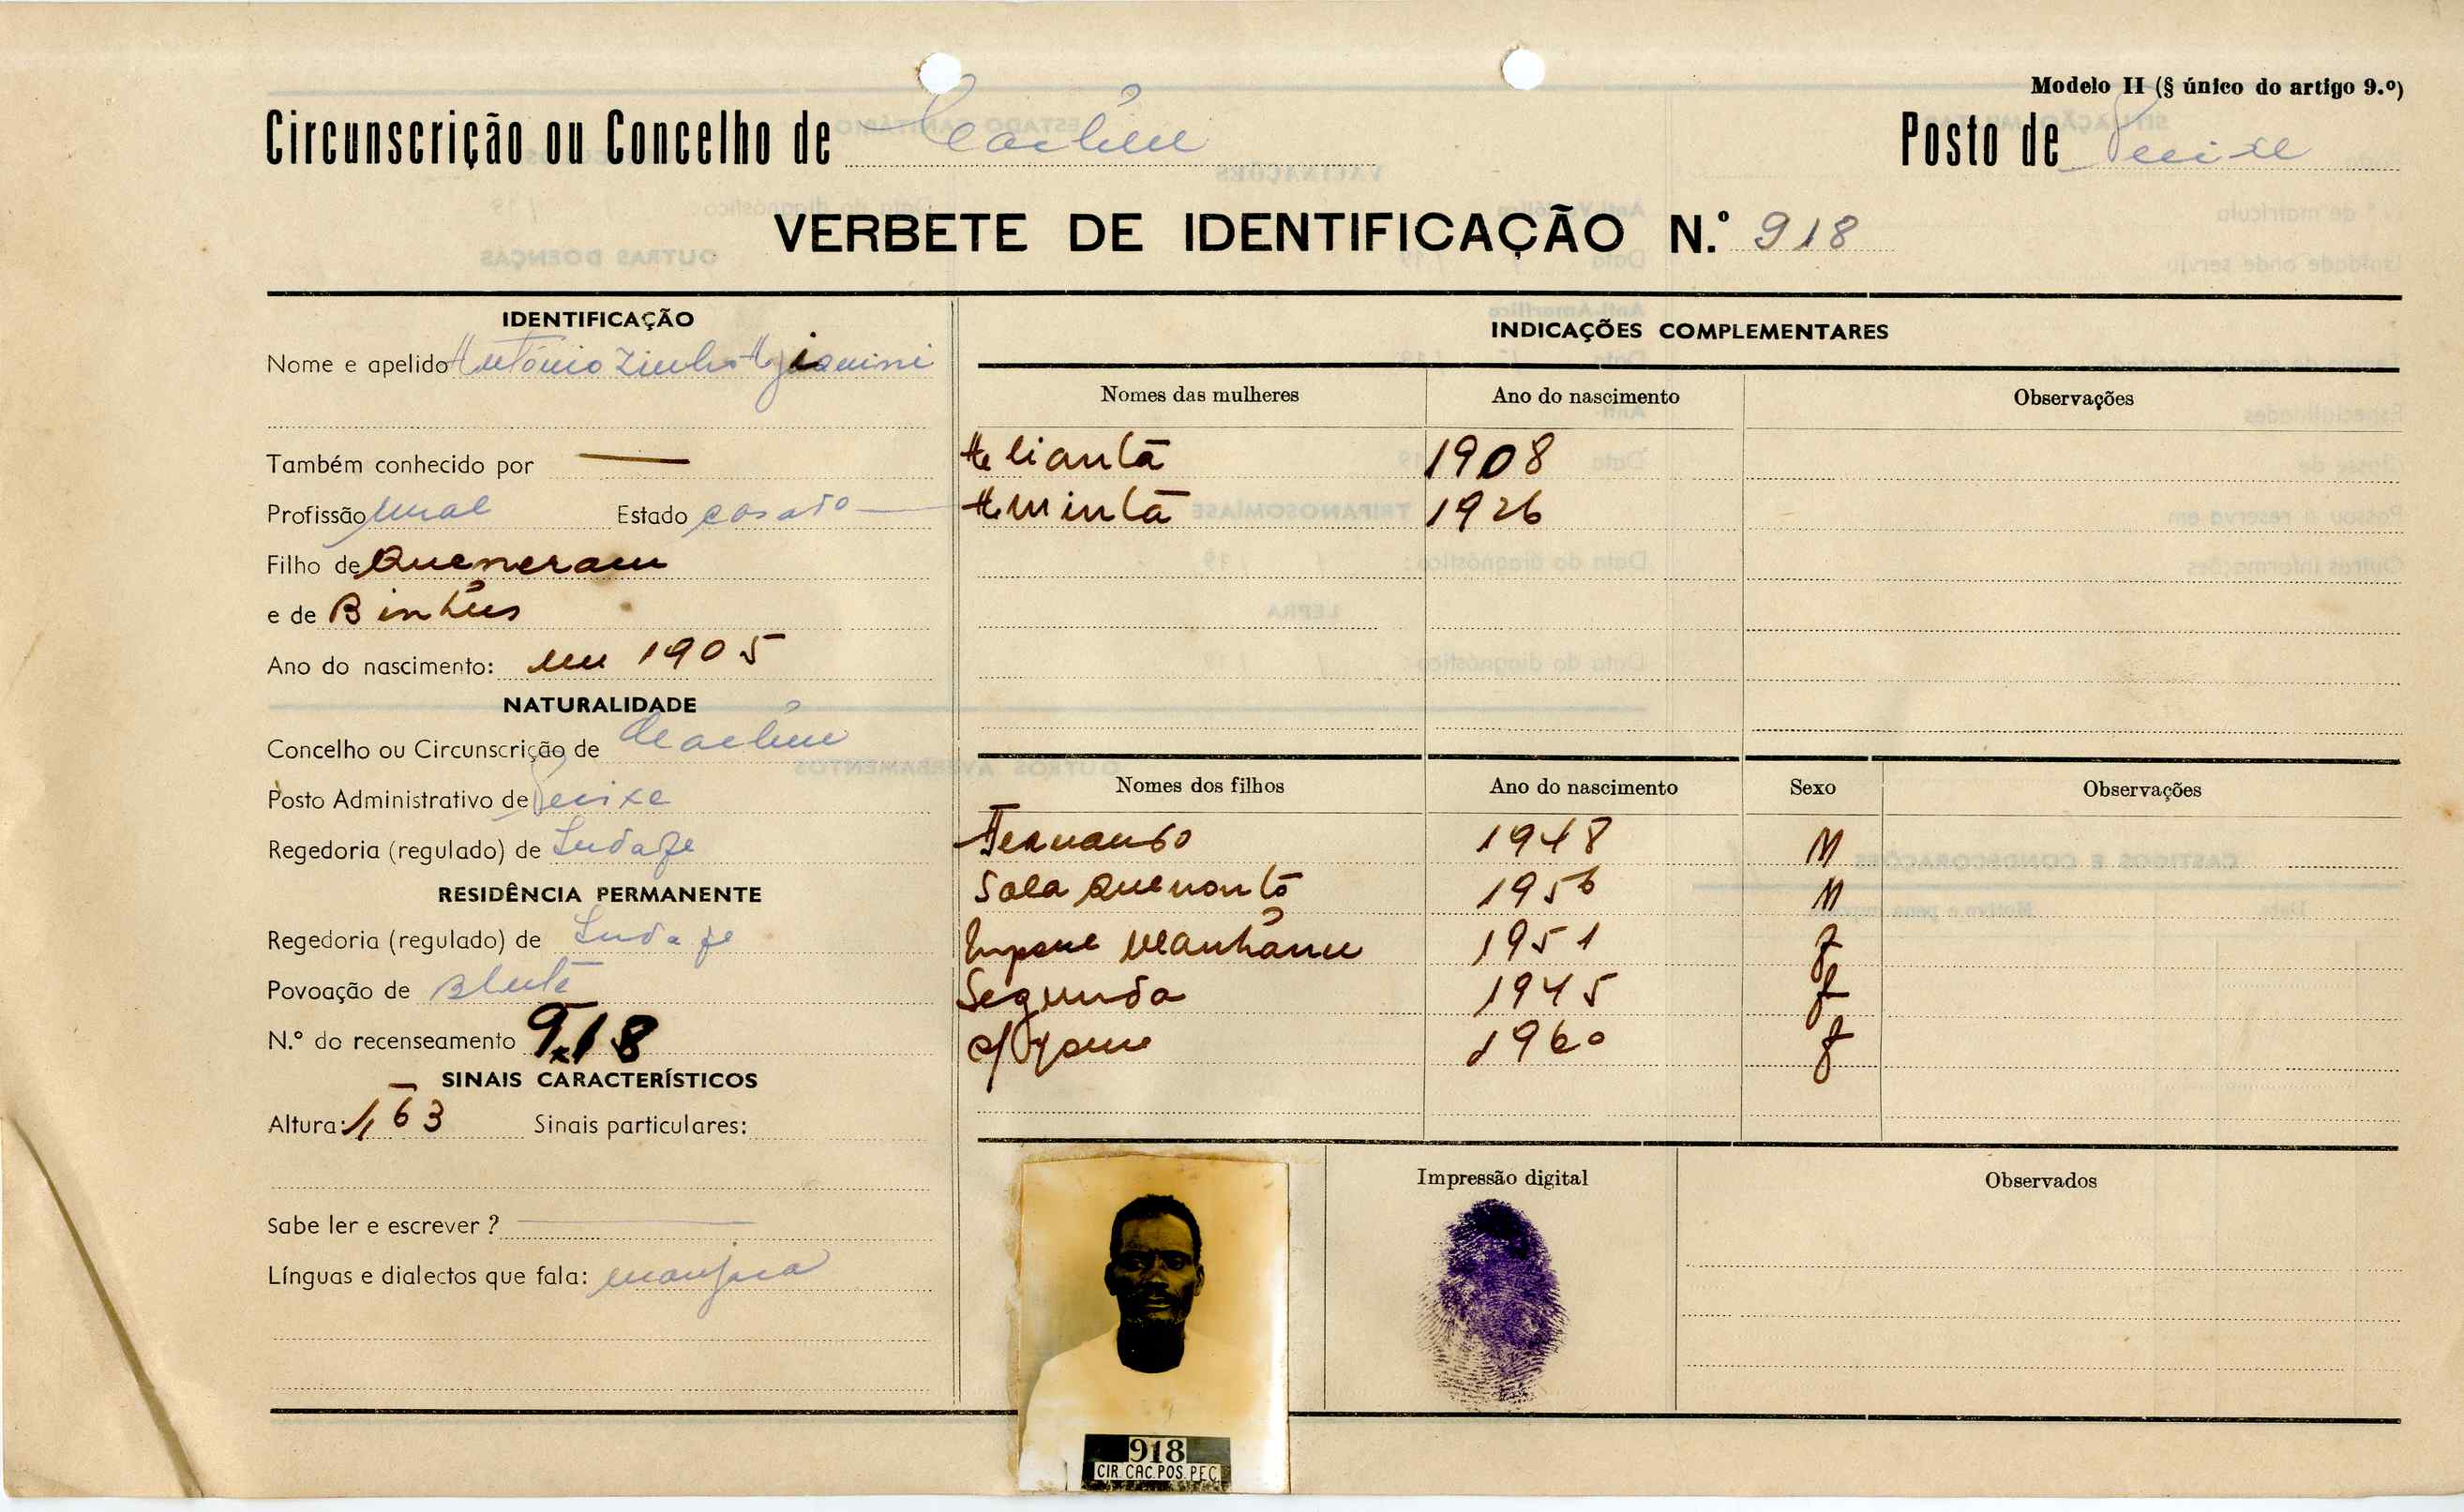 Modelo II (§ único do artigo 9.º)
Circunscrição ou Concelho de Cacheu
Posto de Pecixe
VERBETE DE IDENTIFICAÇÃO N.º 918
IDENTIFICAÇÃO
Nome e apelido António
Também conhecido por —
Profissão rural Estado casado
Filho de
e de
Ano do nascimento: em 1905
NATURALIDADE
Concelho ou Circunscrição de Cacheu
Posto Administrativo de Pecixe
Regedoria (regulado) de
RESIDÊNCIA PERMANENTE
Regedoria (regulado) de
Povoação de
N.º do recenseamento 918
SINAIS CARACTERÍSTICOS
Altura: 1,63 Sinais particulares:
Sabe ler e escrever ? —
Línguas e dialectos que fala: manjaca
INDICAÇÕES COMPLEMENTARES
Nomes das mulheres Ano do nascimento Observações
1908
1926
Nomes dos filhos Ano do nascimento Sexo Observações
Fernando 1948 M
1956 M
1951 f
Segunda 1945 f
1960 f
Impressão digital
Observados
918
CIR. CAC. POS. PEC.